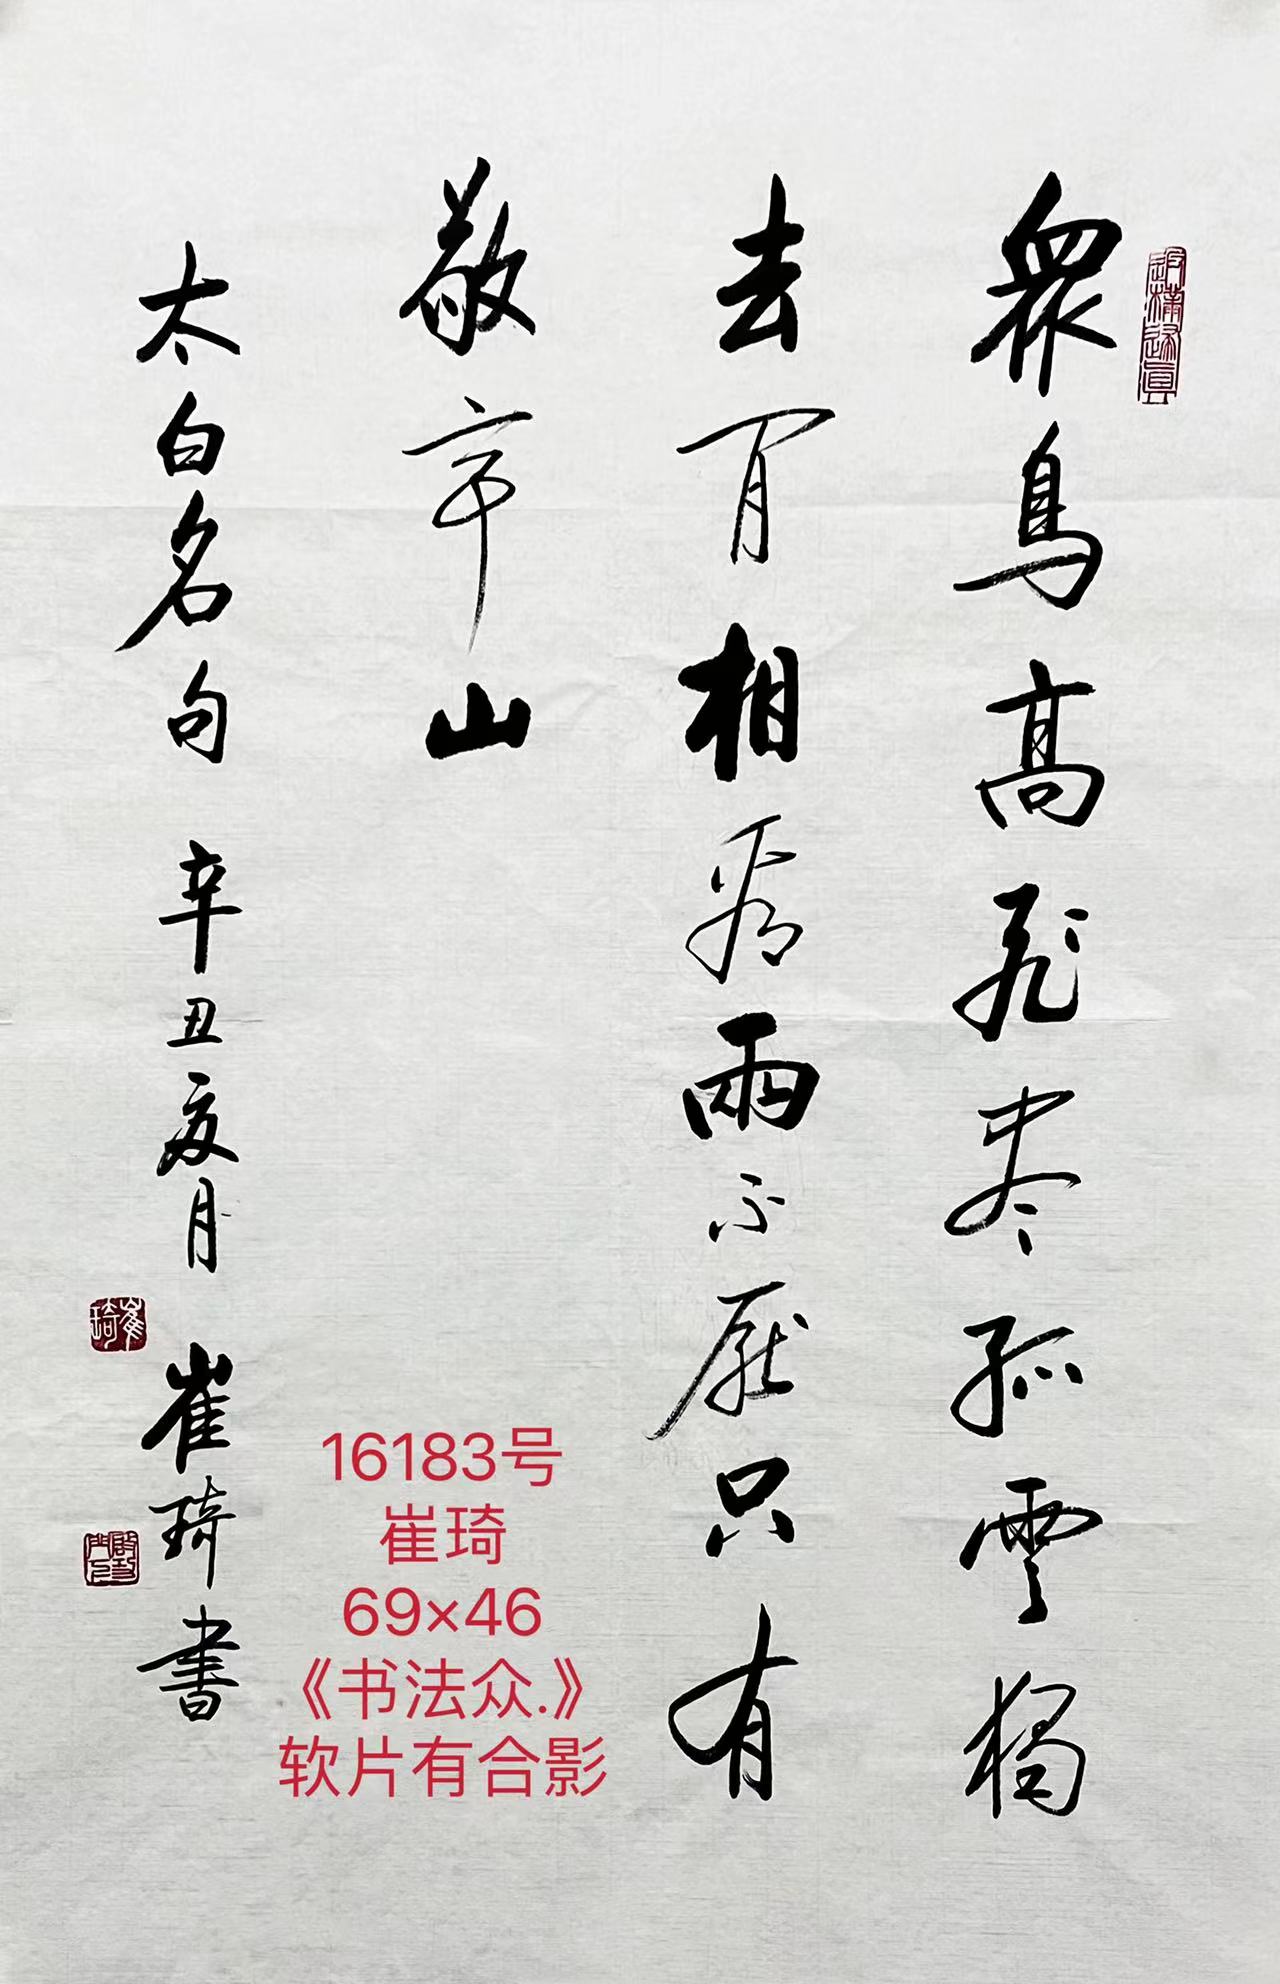 眾鳥高飛盡孤雲獨
去閒相看兩不厭只有
敬亭山
太白名句 辛丑夏月 崔琦書
崔琦
16183号
崔琦
69×46
《书法众.》
软片有合影